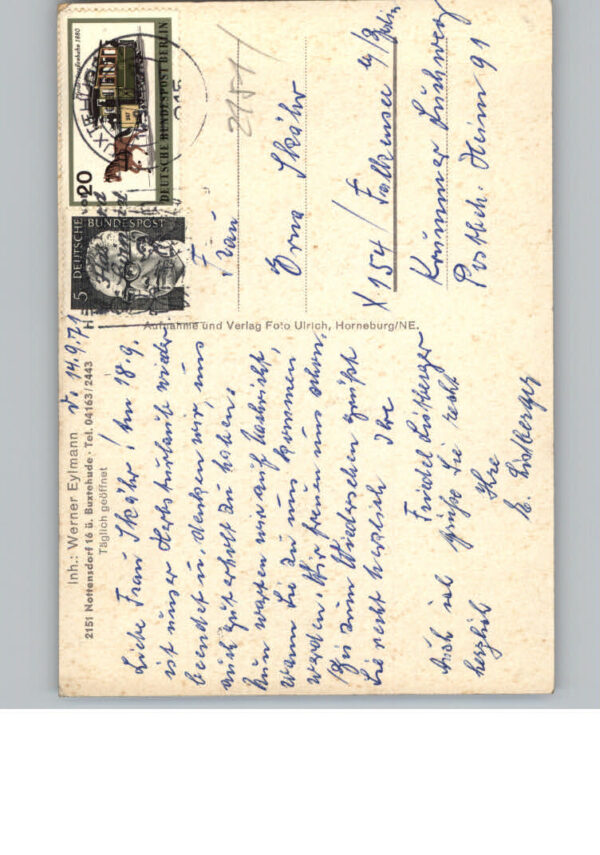 Inh.: Werner Eylmann
2151 Nottensdorf 16 ü. Buxtehude · Tel. 04163/2443
Täglich geöffnet
d. 14.9.71
Liebe Frau Skähr! Am 18.9.
ist unser Herbsturlaub wieder
beendet u. denken wir, uns
auch gut erholt zu haben.
Nun warten wir auf Nachricht,
wann Sie zu uns kommen
werden. Wir freuen uns schon.
Bis zum Wiedersehen grüßt
Sie recht herzlich Ihre
Friedel
Auch ich grüße Sie recht
herzlich Ihre
E.
Aufnahme und Verlag Foto Ulrich, Horneburg/NE.
20
DEUTSCHE BUNDESPOST BERLIN
5
DEUTSCHE BUNDESPOST
BUXTEHUDE
2151
Frau
Erna Skähr
X 154 / Falkensee b/Berlin
Krummer Luchweg
Postsch. Heim 91